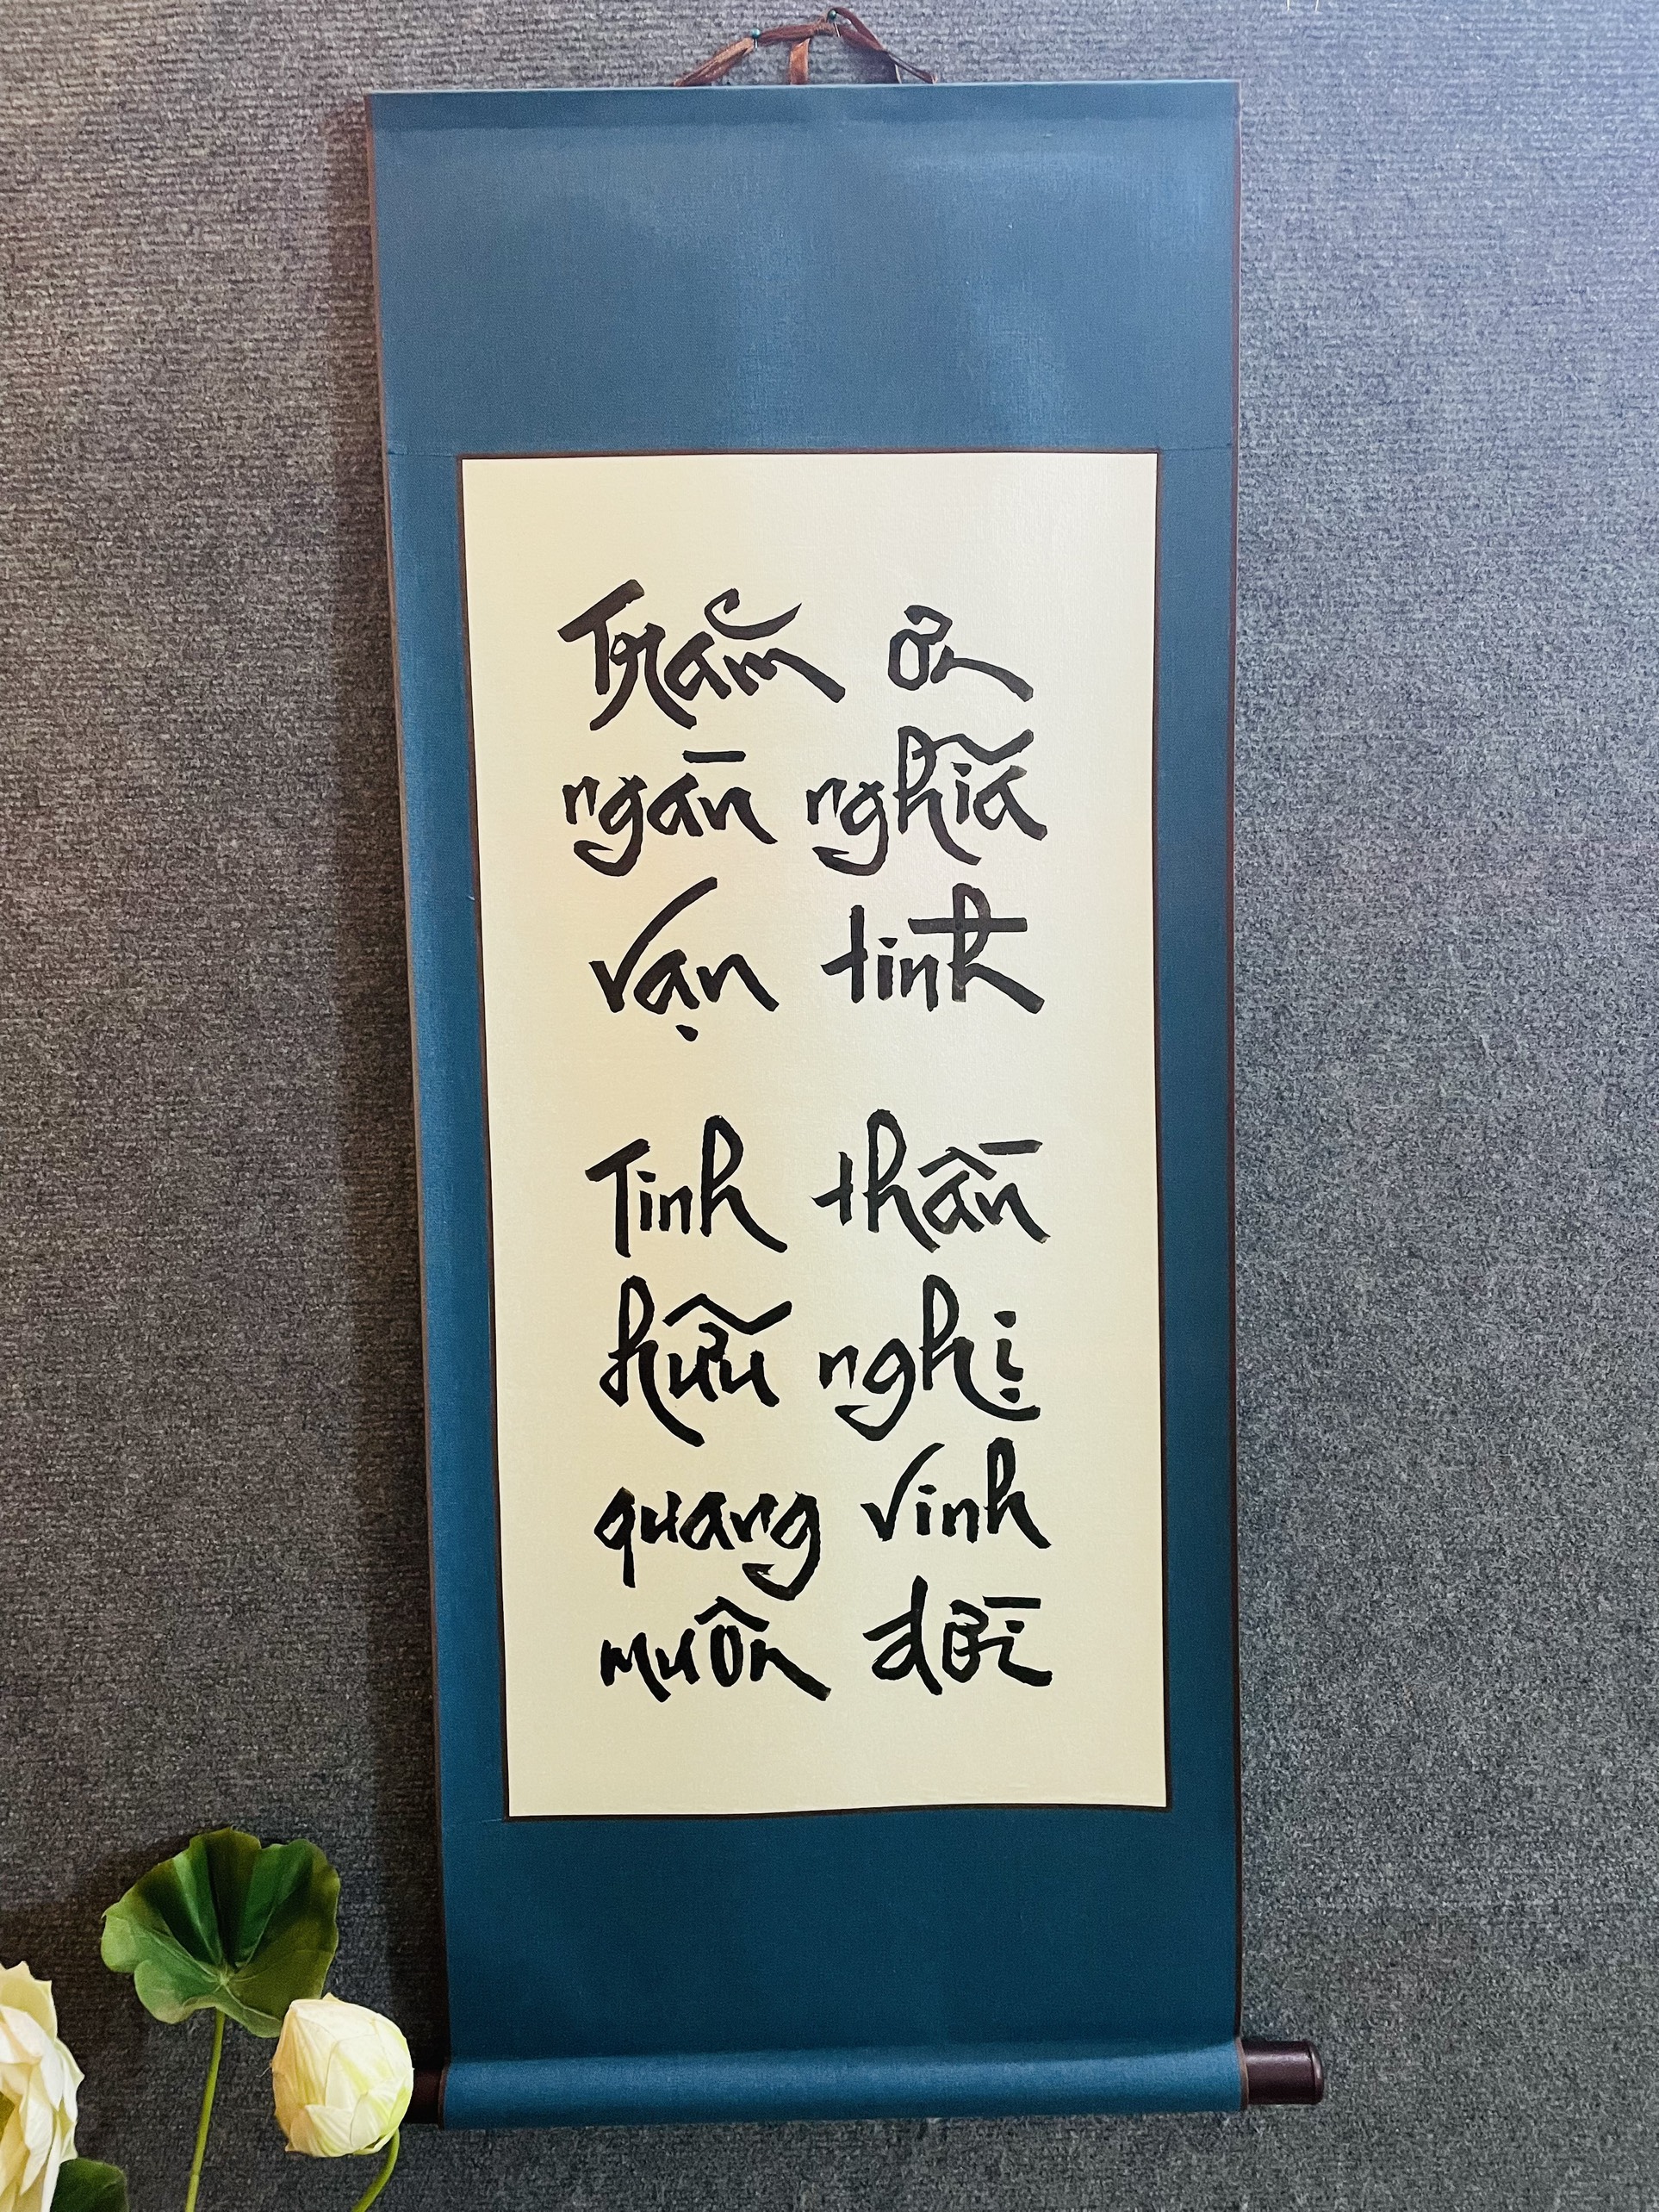 Trăm ơn
ngàn nghĩa
vạn tình
Tinh thần
hữu nghị
quang vinh
muôn đời